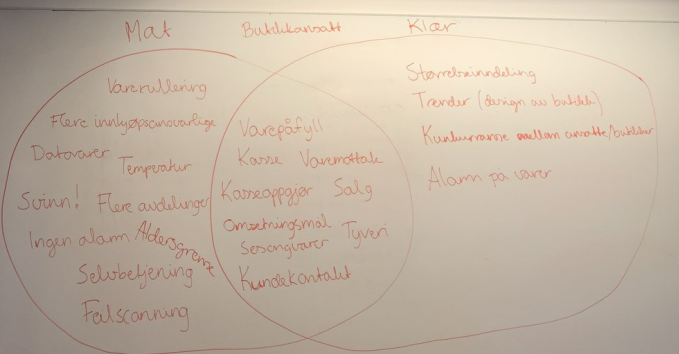 Mat
Butikkansatt
Klær
Varerullering
Flere innkjøpsansvarlige
Datovarer
Temperatur
Svinn!
Flere avdelinger
Ingen alarm
Aldersgrense
Selvbetjening
Falscanning
Varepåfyll
Kasse Varemottak
Kasseoppgjør Salg
Omsetningsmål
Sesongvarer
Tyveri
Kundekontakt
Størrelseinndeling
Trender (design av butikk)
Konkurranse mellom ansatte/butikker
Alarm på varer